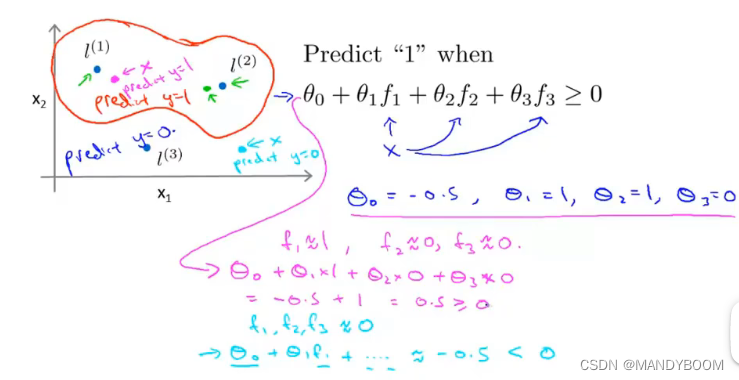 l⁽¹⁾
← x
predict y=1
predict y=1
l⁽²⁾
x₂
predict y=0.
l⁽³⁾
← x
predict y=0
x₁
Predict “1” when
→ θ₀ + θ₁f₁ + θ₂f₂ + θ₃f₃ ≥ 0
x
θ₀ = -0.5, θ₁=1, θ₂=1, θ₃=0
f₁≈1, f₂≈0, f₃≈0.
→ θ₀ + θ₁×1 + θ₂×0 + θ₃×0
= -0.5 + 1 = 0.5 ≥ 0
f₁, f₂, f₃ ≈ 0
→ θ₀ + θ₁f₁ + .... ≈ -0.5 < 0
CSDN @MANDYBOOM